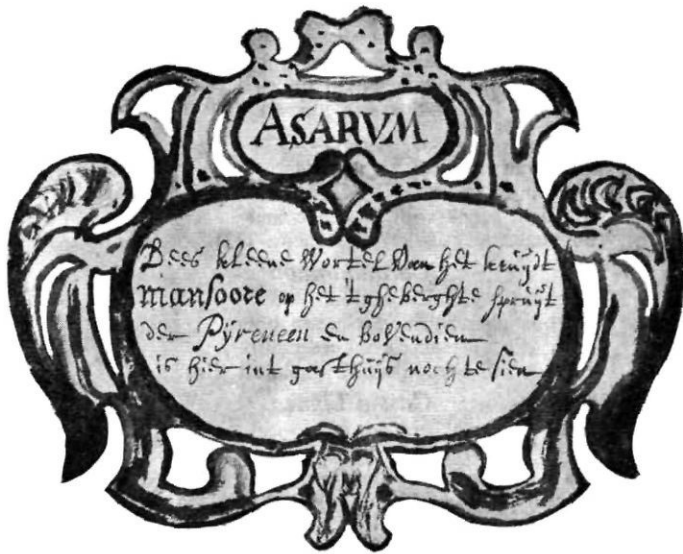 ASARVM
Dees kleene Wortel Van het kruijdt
mansoore op het 't gheberghte spruijt
der Pÿreneen en bovendien
is hier int gasthuijs noch te sien